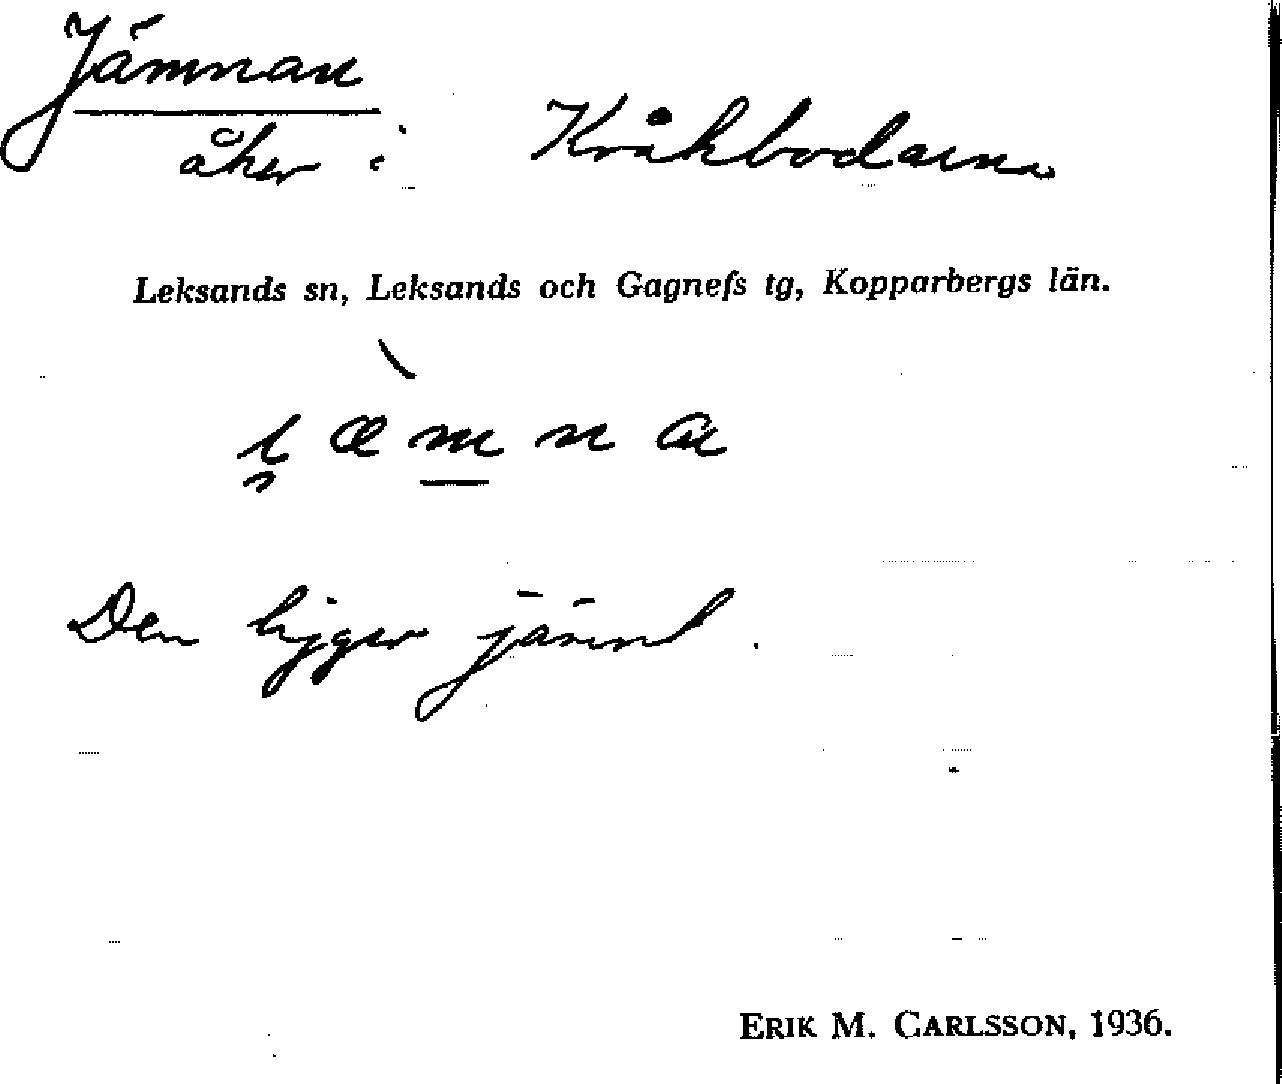 Jämnan
åker i Kråkbodarna
Leksands sn, Leksands och Gagnefs tg, Kopparbergs län.
i̯æ̀m̲na
Den ligger jämnt.
ERIK M. CARLSSON, 1936.